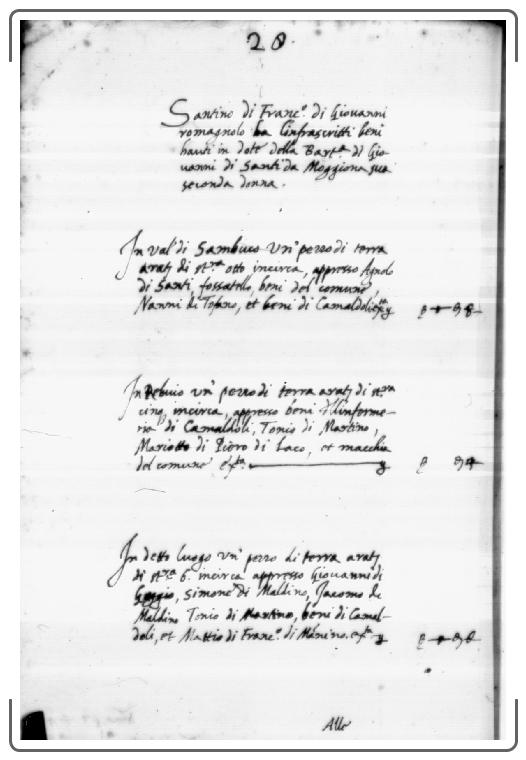 28.
Santino di Franc.º di Giovanni
romagnolo ha l'infrascritti beni
hauti in dote della Bart.ª di Gio-
uanni di Santi da Moggiona sua
seconda donna.
In val' di Sambuco un' pezzo di terra
di st.ra otto incirca, appresso Agnolo
di Santi, fossatello, beni del comune,
Nanni di Tofano, et beni di Camaldoli
In un' pezzo di terra di st.ra
cinq. incirca, appresso beni dell'infirme-
ria di Camaldoli, Tonio di Martino,
Mariotto di Piero di Laco, et macchia
del comune
In detto luogo un' pezzo di terra
di st.ra 6. incirca appresso Giovanni di
Simone di Maldino, Jacomo di
Maldino Tonio di Martino, beni di Camal-
doli, et Mattio di Franc.º di Manino.
Alle